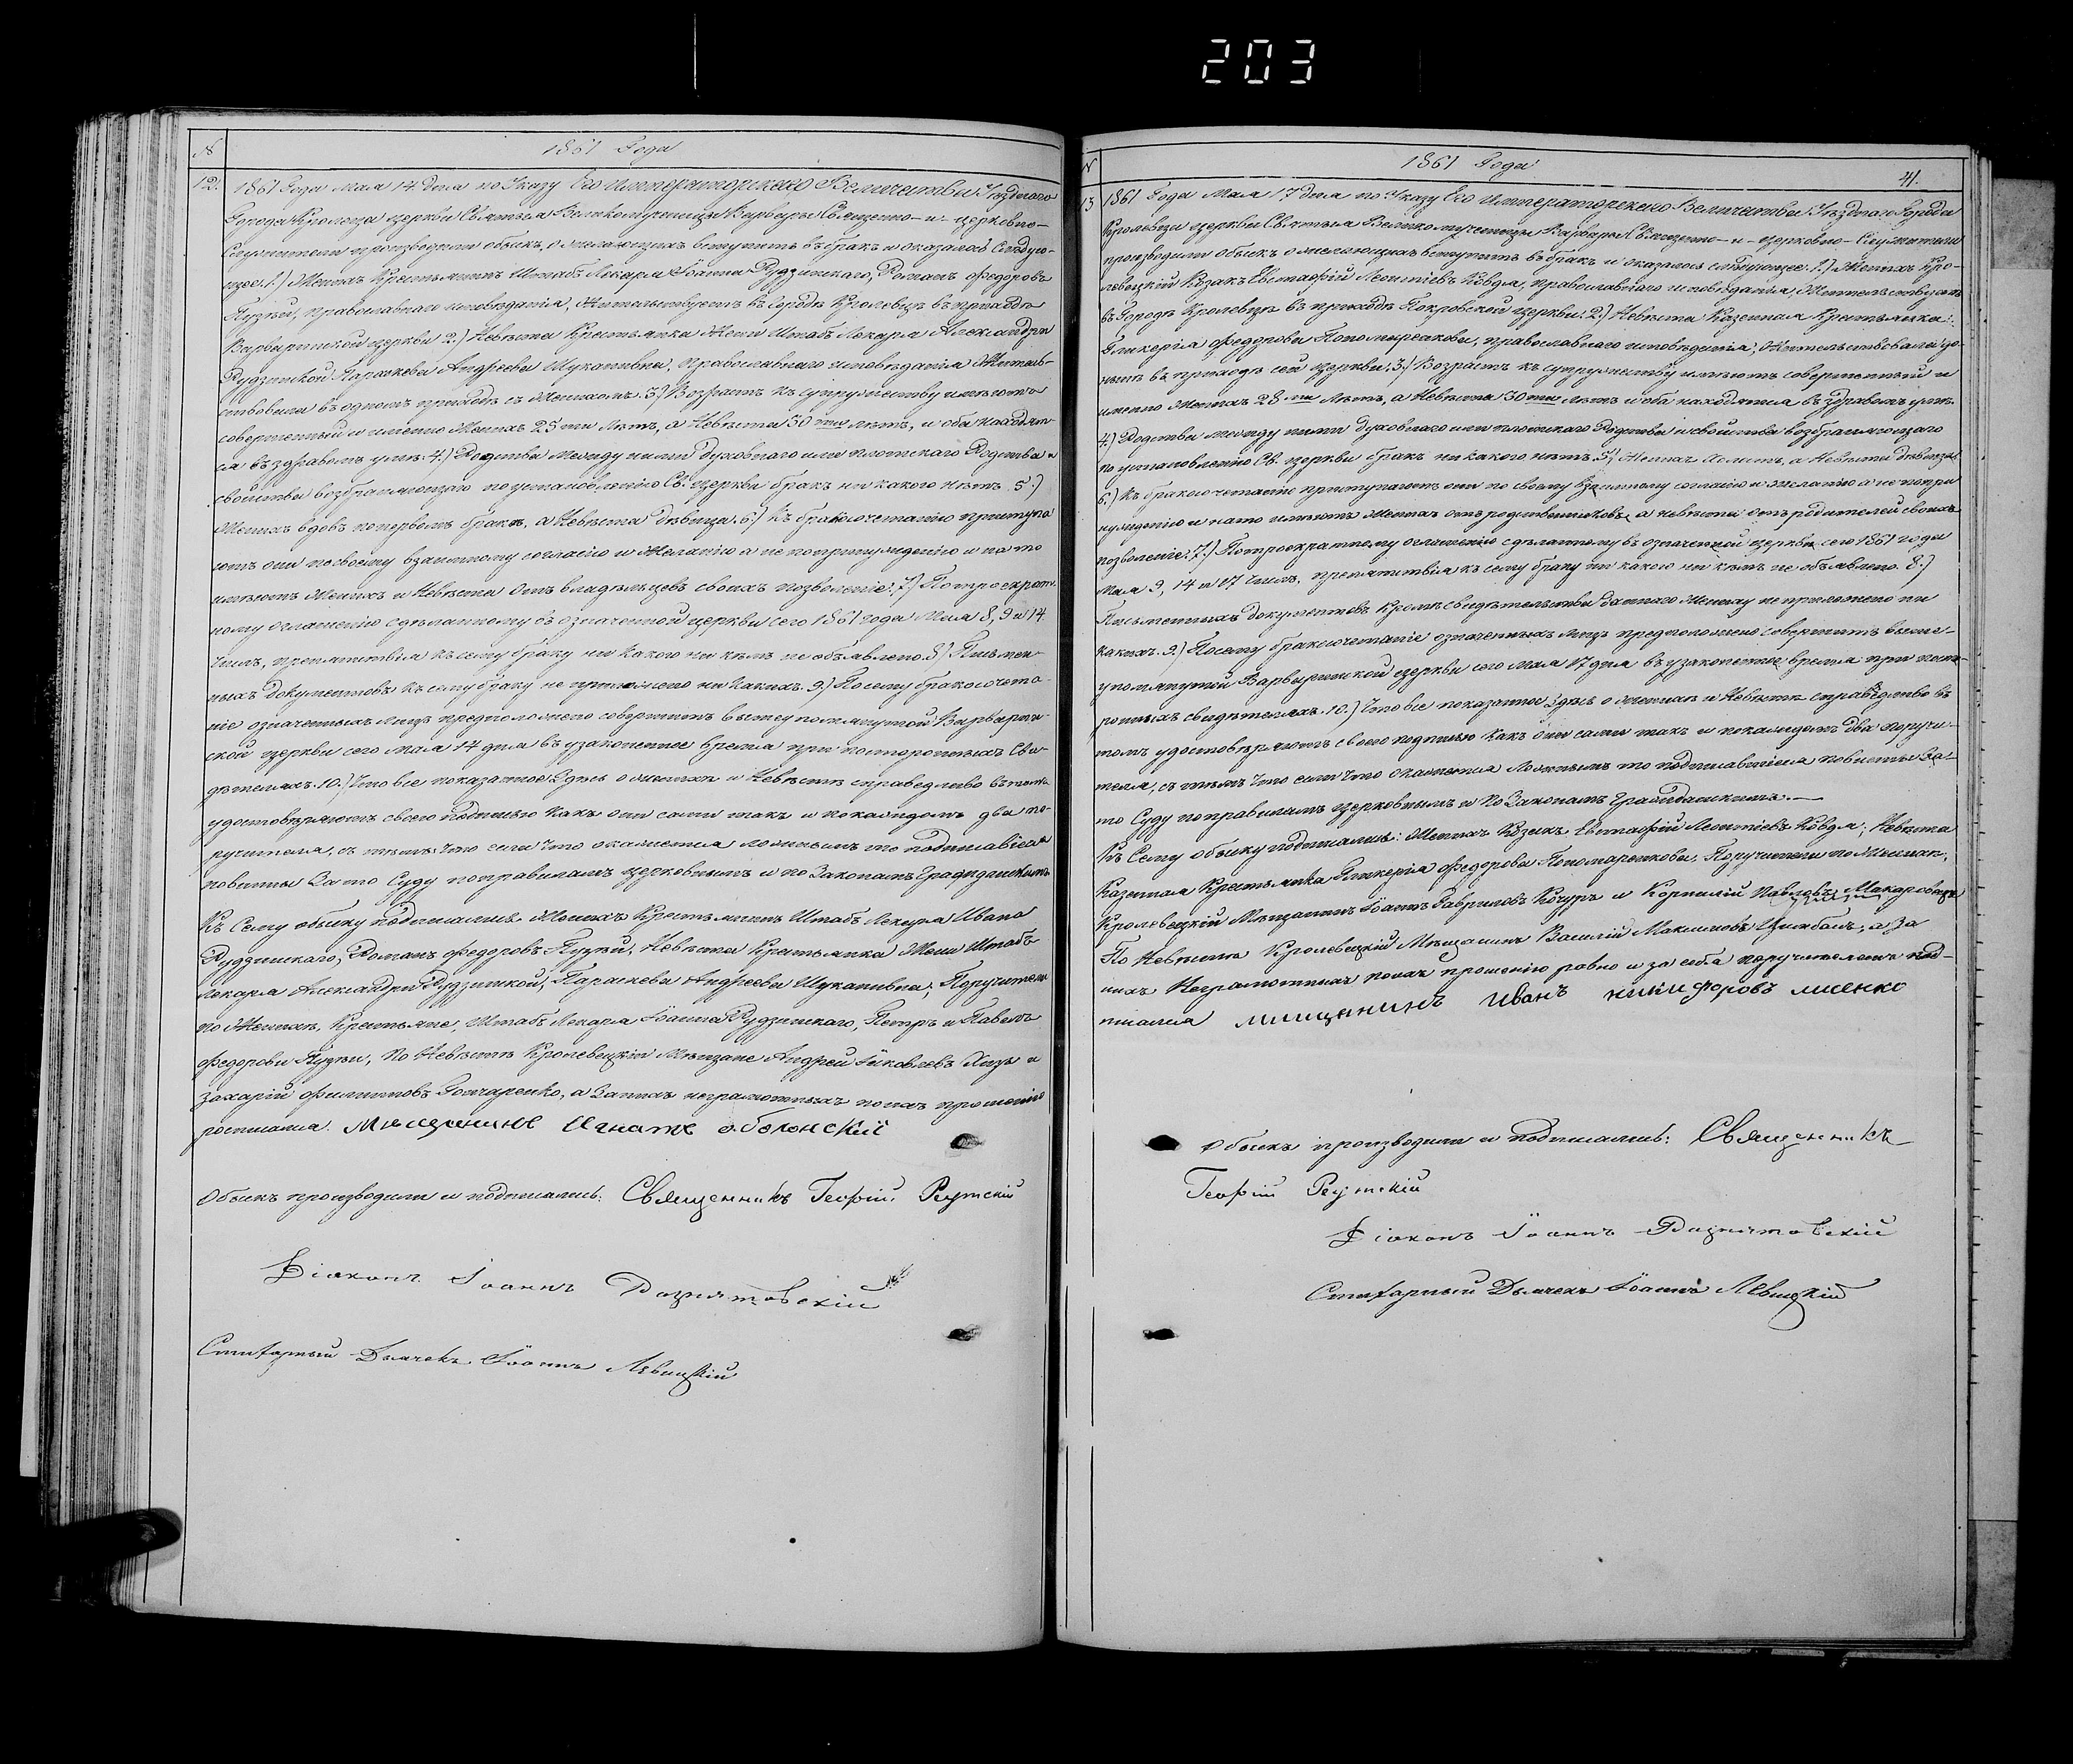 203
№ 1861 Года
12. 1861 Года Мая 14 дня по Указу Его Императорскаго Величества Уѣзднаго
Города Кролевца церкви Святыя Великомученицы Варвары Священно- и- церковно-
Служители производили обыскъ о желающихъ вступить въ бракъ и оказалось слѣдую-
щее. 1.) Женихъ Крестьянинъ Штабъ Лекаря Іоанна Рудзинскаго, Романъ Федоровъ
православнаго исповѣданія, Жительствуетъ въ Городѣ Кролевцѣ въ приходѣ
Варваринской церкви 2.) Невѣста Крестьянка Жены Штабъ Лекаря Александры
Рудзинской Параскева Андреева православнаго исповѣданія Житель-
ствовала въ одномъ приходѣ съ Женихомъ. 3.) Возрастъ къ супружеству имѣютъ
совершенный и именно Женихъ 25 ти Лѣтъ, а Невѣста 30 ти лѣтъ, и оба находят-
ся въ здравомъ умѣ. 4.) Родства между ними духовнаго или плотскаго Родства и
свойства возбраняющаго по установленію Св. церкви бракъ ни какого нѣтъ. 5.)
Женихъ вдовъ по первомъ бракѣ, а Невѣста дѣвица. 6.) Къ бракосочетанію приступа
ютъ они по своему взаимному согласію и Желанію а не по принужденію и на то
имѣютъ Женихъ и Невѣста Отъ владѣльцевъ своихъ позволеніе. 7.) По троекрат-
ному оглашенію сдѣланному въ означенной церкви сего 1861 года Мая 8, 9 и 14
Числъ, препятствія къ сему браку ни какого ни кѣмъ не объявлено. 8.) Письмен-
ныхъ документовъ къ сему браку не приложено ни какихъ. 9.) По сему бракосочета-
ніе означенныхъ лицъ предположено совершить въ вышеупомянутой Варварин-
ской церкви сего Мая 14 дня въ узаконенное время при постороннихъ Сви-
дѣтеляхъ. 10.) Что все показанное здѣсь о женихѣ и Невѣстѣ справедливо въ томъ
удостовѣряютъ своею подписью какъ они сами такъ и по каждомъ два по-
ручителя, съ тѣмъ что если что окажется ложнымъ то подписавшіеся
повинны За то Суду по правиламъ церковнымъ и по Законамъ Гражданскимъ
Къ Сему обыску подписались Женихъ Крестьянинъ Штабъ Лекаря Ивана
Рудзинскаго, Романъ Федоровъ Невѣста Крестьянка Жены Штабъ
Лекаря Александры Рудзинской, Параскева Андреева Поручители
по Женихѣ, Крестьяне, Штабъ Лекаря Іоанна Рудзинскаго, Петръ и Павелъ
Федоровы по Невѣстѣ Кролевецкіи Мѣщане Андрей Яковлевъ и
Захарій Филиповъ Гончаренко, а За нихъ неграмотныхъ по ихъ прошенію
росписался. Мѣщанинъ Игнатъ оболонскій
Обыскъ производили и подписались: Священникъ Георгій Реутскій
Діаконъ Іоаннъ
Стихарный Дьячекъ Іоаннъ Лѣвицкій
№ 1861 Года
41.
13 1861 Года Мая 17 дня по Указу Его Императорскаго Величества Уѣзднаго Города
Кролевца церкви Святыя Великомученицы Варвары Священно- и- церковно- Служители
производили обыскъ о желающихъ вступить въ бракъ и оказалось слѣдующее. 1.) Женихъ Кро-
левецкій Козакъ Евстафій Леонтіевъ Ковдя, православнаго исповѣданія, Жительствуетъ
въ Городѣ Кролевцѣ въ приходѣ Покровской церкви. 2.) Невѣста Казенная Крестьянка
Гликерія Федорова Пономаренкова, православнаго исповѣданія, Жительствовала до-
нынѣ въ приходѣ сей церкви. 3.) Возрастъ къ супружеству имѣютъ совершенный и
именно Женихъ 28 ми Лѣтъ, а Невѣста 30 ти лѣтъ и оба находятся въ здравомъ умѣ.
4.) Родства между ними духовнаго или плотскаго Родства и свойства возбраняющаго
по установленію Св. церкви бракъ ни какого нѣтъ. 5.) Женихъ холостъ, а Невѣста дѣвица
6.) Къ бракосочетанію приступаютъ они по своему взаимному согласію и желанію а не по при
нужденію и на то имѣютъ Женихъ отъ родственниковъ, а невѣста отъ родителей своихъ
позволеніе. 7.) По троекратному оглашенію сдѣланному въ означенной церкви сего 1861 года
Мая 9, 14 и 17 Числъ, препятствія къ сему браку ни какого ни кѣмъ не объявлено. 8.)
Письменныхъ документовъ кромѣ свидѣтельства даннаго Жениху не приложено ни
какихъ. 9.) Посему бракосочетаніе означенныхъ лицъ предположено совершить въ выше-
упомянутой Варваринской церкви сего Мая 17 дня въ узаконенное время при посто-
роннихъ свидѣтеляхъ. 10.) Что все показанное здѣсь о женихѣ и Невѣстѣ справедливо въ
томъ удостовѣряютъ своею подписью какъ они сами такъ и по каждомъ два поручи-
теля, съ тѣмъ что если что окажется Ложнымъ то подписавшіеся повинны За-
то Суду по правиламъ церковнымъ и по Законамъ Гражданскимъ.—
Къ Сему обыску подписались: Женихъ Козакъ Евстафій Леонтіевъ Ковдя; Невѣста
Казенная Крестьянка Гликерія Федорова Пономаренкова, Поручители по Женихѣ,
Кролевецкій Мѣщанинъ Іоаннъ Гавриловъ Кочуръ и Корнилій Павловъ Макаровецъ
По Невѣстѣ Кролевецкій Мѣщанинъ Василій Максимовъ Цимбалъ, а За
нихъ Неграмотныхъ по ихъ прошенію ровно и за себя поручителемъ под-
писался мищанинъ Иванъ никифоровъ лисенко
Обыскъ производили и подписались: Священникъ
Георгій Реутскій
Діаконъ Іоаннъ
Стихарный Дьячекъ Іоаннъ Лѣвицкій